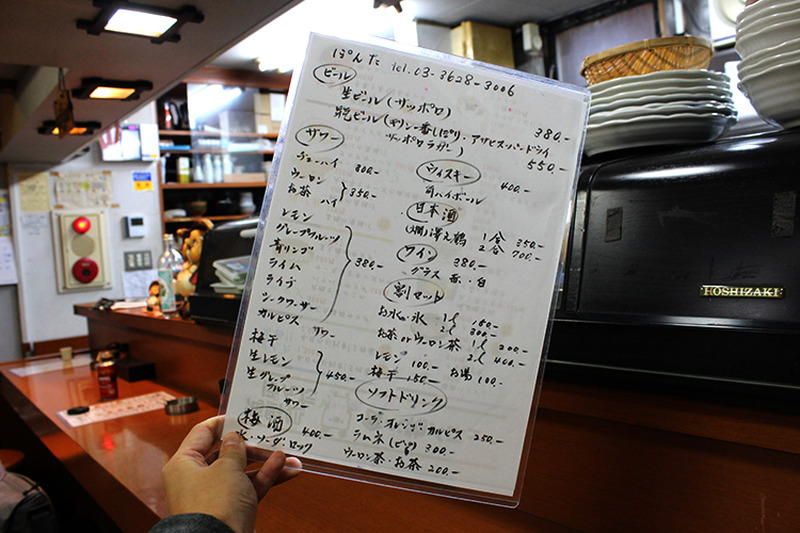 ぽんた tel. 03-3628-3006
ビール
生ビール(サッポロ) 380.-
瓶ビール(キリン一番しぼり・アサヒスーパードライ
サッポロラガー) 550.-
サワー
チューハイ 300.-
ウーロン
お茶 ハイ 350.-
レモン
グレープフルーツ
青リンゴ
ライム 380.-
ライチ
シークワーサー
カルピス サワー
梅干
生レモン
生グレープ 450.-
フルーツ サワー
梅酒 400.-
水・ソーダ・ロック
ウィスキー
角ハイボール 400.-
日本酒
(燗)澤之鶴 1合 350.-
2合 700.-
ワイン 380.-
グラス 赤・白
割セット
お水・氷 1ℓ 160.-
2ℓ 300.-
お茶orウーロン茶 1ℓ 200.-
2ℓ 400.-
レモン 100.- お湯 100.-
梅干 150.-
ソフトドリンク
コーラ・オレンジ・カルピス 250.-
ラムネ(ビン) 300.-
ウーロン茶・お茶 200.-
HOSHIZAKI